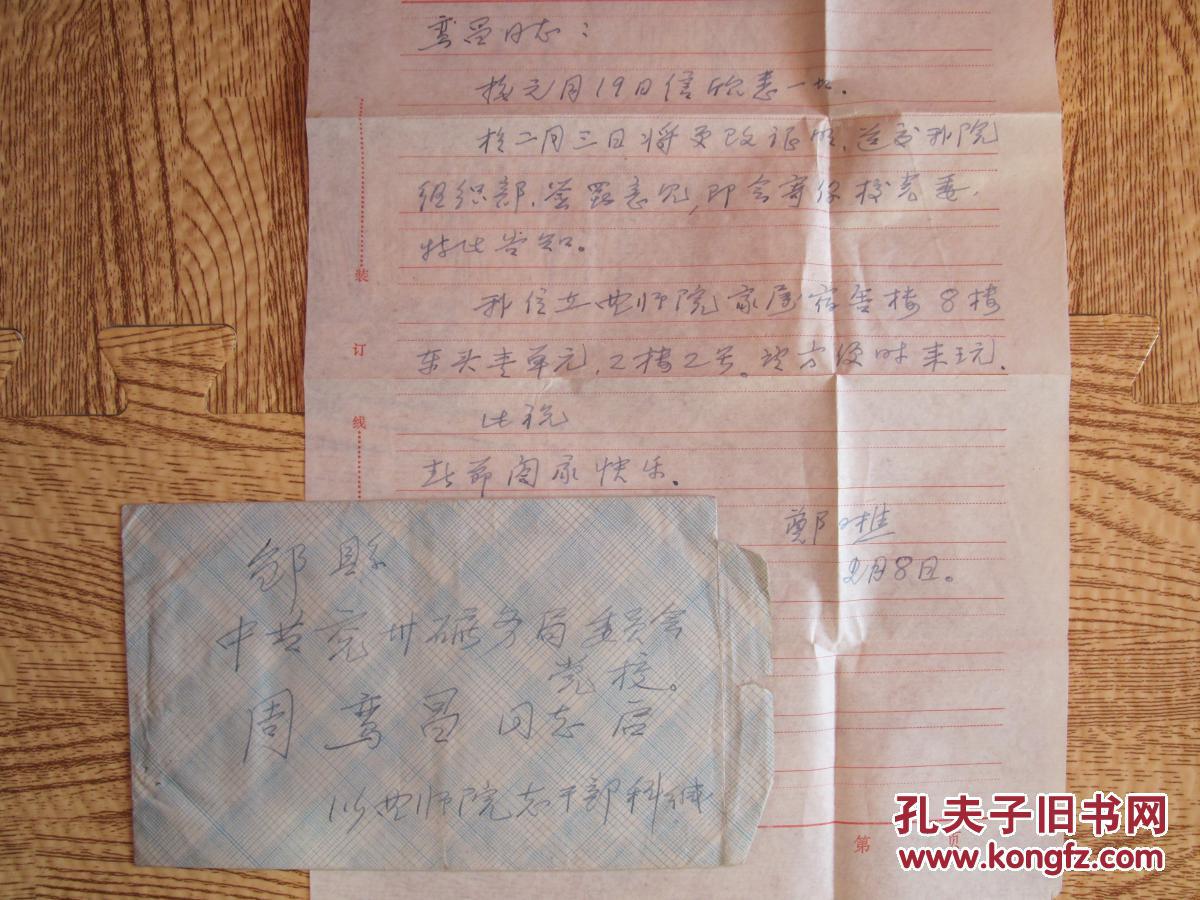 鸾昌同志：
接元月19日信欣悉一切.
于二月三日将更改证明.送交我院
组织部.签署意见,即会寄你校党委.
特此告知。
我住在曲师院家属宿舍楼8楼
东头壹单元.2楼2号。望方便时来玩.
此祝
春节阖家快乐.
鄭
2月8日。
装
订
线
邹縣
中共兖州矿务局委员会
党校。
周鸾昌同志启
曲师院老干部科缄
第 页
孔夫子旧书网
www.kongfz.com